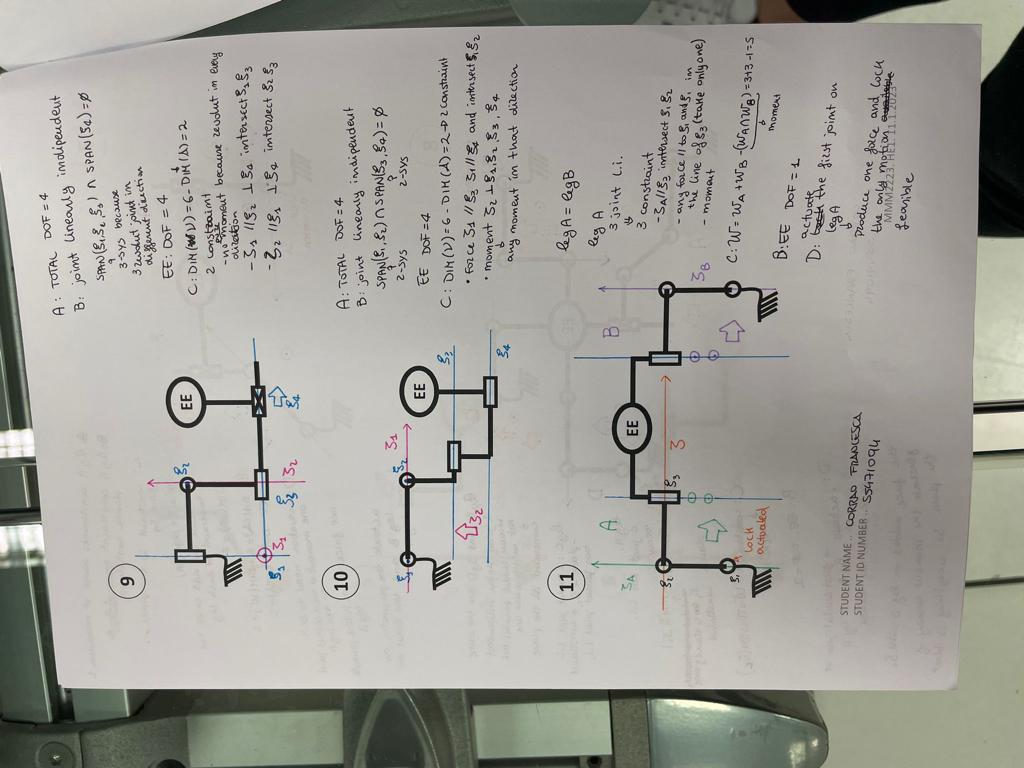 A: TOTAL DOF = 4
B: joint linearly indipendent
SPAN(ξ1,ξ2,ξ3) ∩ SPAN(ξ4)=∅
3-sys because
3 revolut joint in
different direction
EE: DOF = 4
C: DIM(W)=6-DIM(Λ)=2
2 constraint
- no moment because revolut in every
direction
- ζ1 // ξ2 ⊥ ξ4 intersect ξ1 ξ3
- ζ2 // ξ1 ⊥ ξ4 intersect ξ2 ξ3
9
ξ2
EE
ξ1 ζ1
ξ3 ζ2
ξ4
10
ξ1
ξ2
ζ1
EE
ξ3
ζ2
ξ4
A: TOTAL DOF = 4
B: joint linearly indipendent
SPAN(ξ1,ξ2) ∩ SPAN(ξ3,ξ4)=∅
2-sys 2-sys
EE DOF=4
C: DIM(V)=6 - DIM(Λ)=2 → 2 constraint
• force ζ1 // ξ3 ζ1 // ξ4 and intersect ξ1 ξ2
• moment ζ2 ⊥ ξ1, ξ2, ξ3, ξ4
any moment in that direction
11
ζA
A
B
EE
ξ2
ξ3
ζ
ζB
ξ1
lock
actuated
leg A = leg B
leg A
3 joint l.i.
3 constraint
- ζA // ξ3 intersect ξ1 ξ2
- any force // to ξ1 and ξ2 in
the line of ξ3 (take only one)
- moment
C: W = WA + WB - (WA∩WB) = 3+3-1=5
moment
B: EE DOF = 1
actuate
D: the first joint on
leg A
Produce one force and lock
the only motion available
feasible
STUDENT NAME .. CORRAO FRANCESCA
STUDENT ID NUMBER .. S5471094
MMM2223. HE1. 11.1.2023